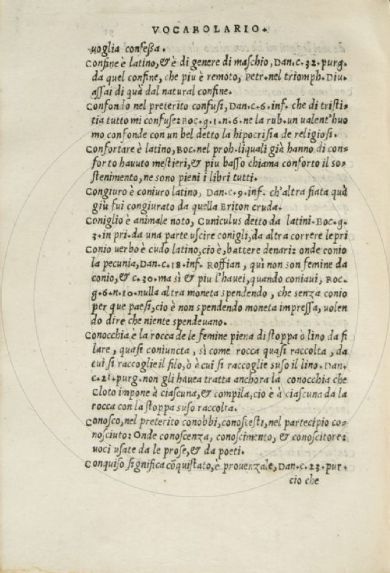 VOCABOLARIO.
uoglia confeßa.
Confine è latino, & è di genere di maschio, Dan.c.32. purg.
da quel confine, che piu è remoto, Petr.nel triomph. Diu.
assai di quà dal natural confine.
Confondo nel preterito confusi, Dan.c.6.inf. che di tristi-
tia tutto mi confuse: Boc.g.1.n.6. ne la rub. un ualent'huo
mo confonde con un bel detto la hipocrisia de religiosi.
Confortare è latino, Boc. nel proh. liquali già hanno di con-
forto hauuto mestieri, & piu basso chiama conforto il so-
stenimento, ne sono pieni i libri tutti.
Congiuro è coniuro latino, Dan.c.9.inf. ch'altra fiata quà
giù fui congiurato da quella Eriton cruda.
Coniglio è animale noto, Cuniculus detto da latini. Boc.g.
3.in pri.da una parte uscire conigli, da altra correre lepri
Conio uerbo è cudo latino, cio è, battere denari: onde conio
la pecunia, Dan.c.18.inf. Roffian, qui non son femine da
conio, & c.30. ma sì è piu l'hauei, quando coniaui, Boc.
g.6.n.10. nulla altra moneta spendendo, che senza conio
per que paesi, cio è non spendendo moneta impressa, uolen
do dire che niente spendeuano.
Conocchia è la rocca de le femine piena di stoppa ò lino da fi
lare, quasi coniuncta, sì come rocca quasi raccolta, da
cui si raccoglie il filo, ò è cui si raccoglie suso il lino. Dan.
c.21.purg.non gli hauea tratta anchora la conocchia che
Cloto impone à ciascuna, & compila, cio è à ciascuna da la
rocca con la stoppa suso raccolta.
Conosco, nel preterito conobbi, conoscesti, nel partecipio co-
nosciuto: Onde conoscenza, conoscimento, & conoscitore:
uoci usate da le prose, & da poeti.
Conquiso significa cõquistato, è prouenzale, Dan.c.23.pur-
cio che